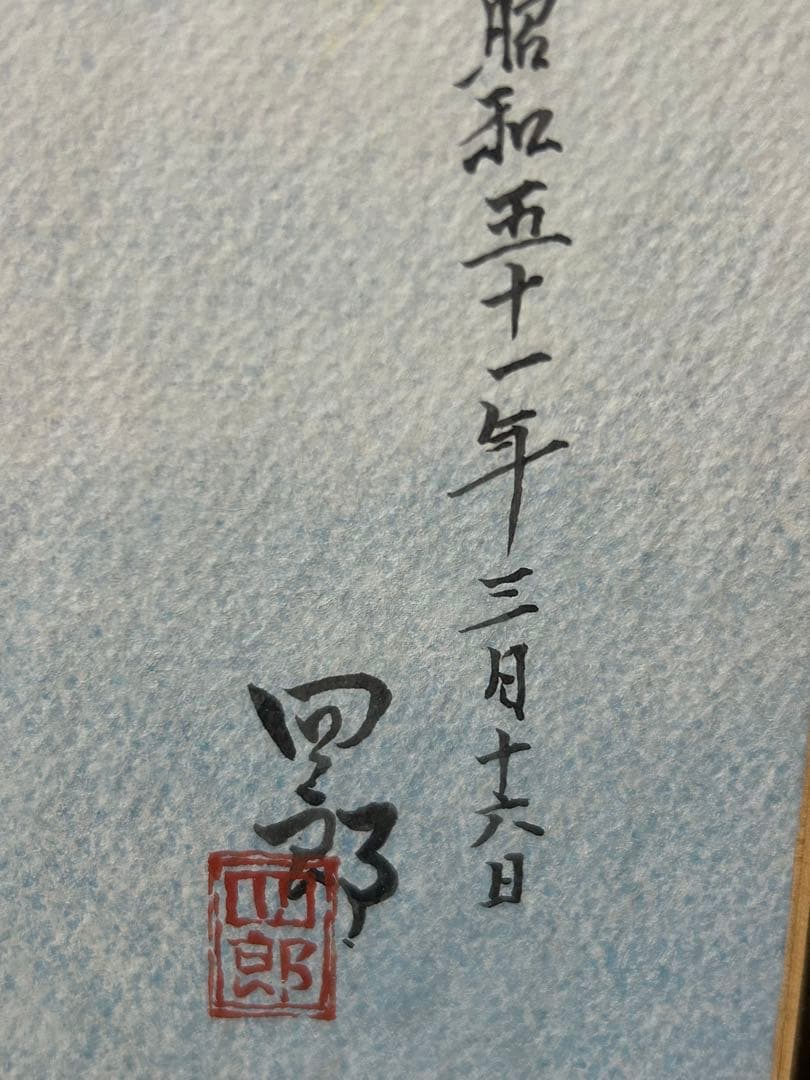 昭和五十一年三月十六日
四郎
四郎